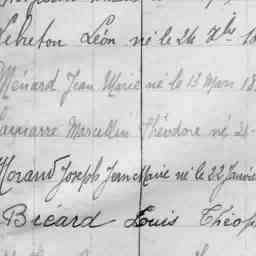 Lebreton Léon né le 24 7bre 18
Ménard Jean Marie né le 13 Mars 18
Marcellin Théodore né 21
Morand Joseph Jean Marie né le 22 Janvie
Bicard Louis Théop